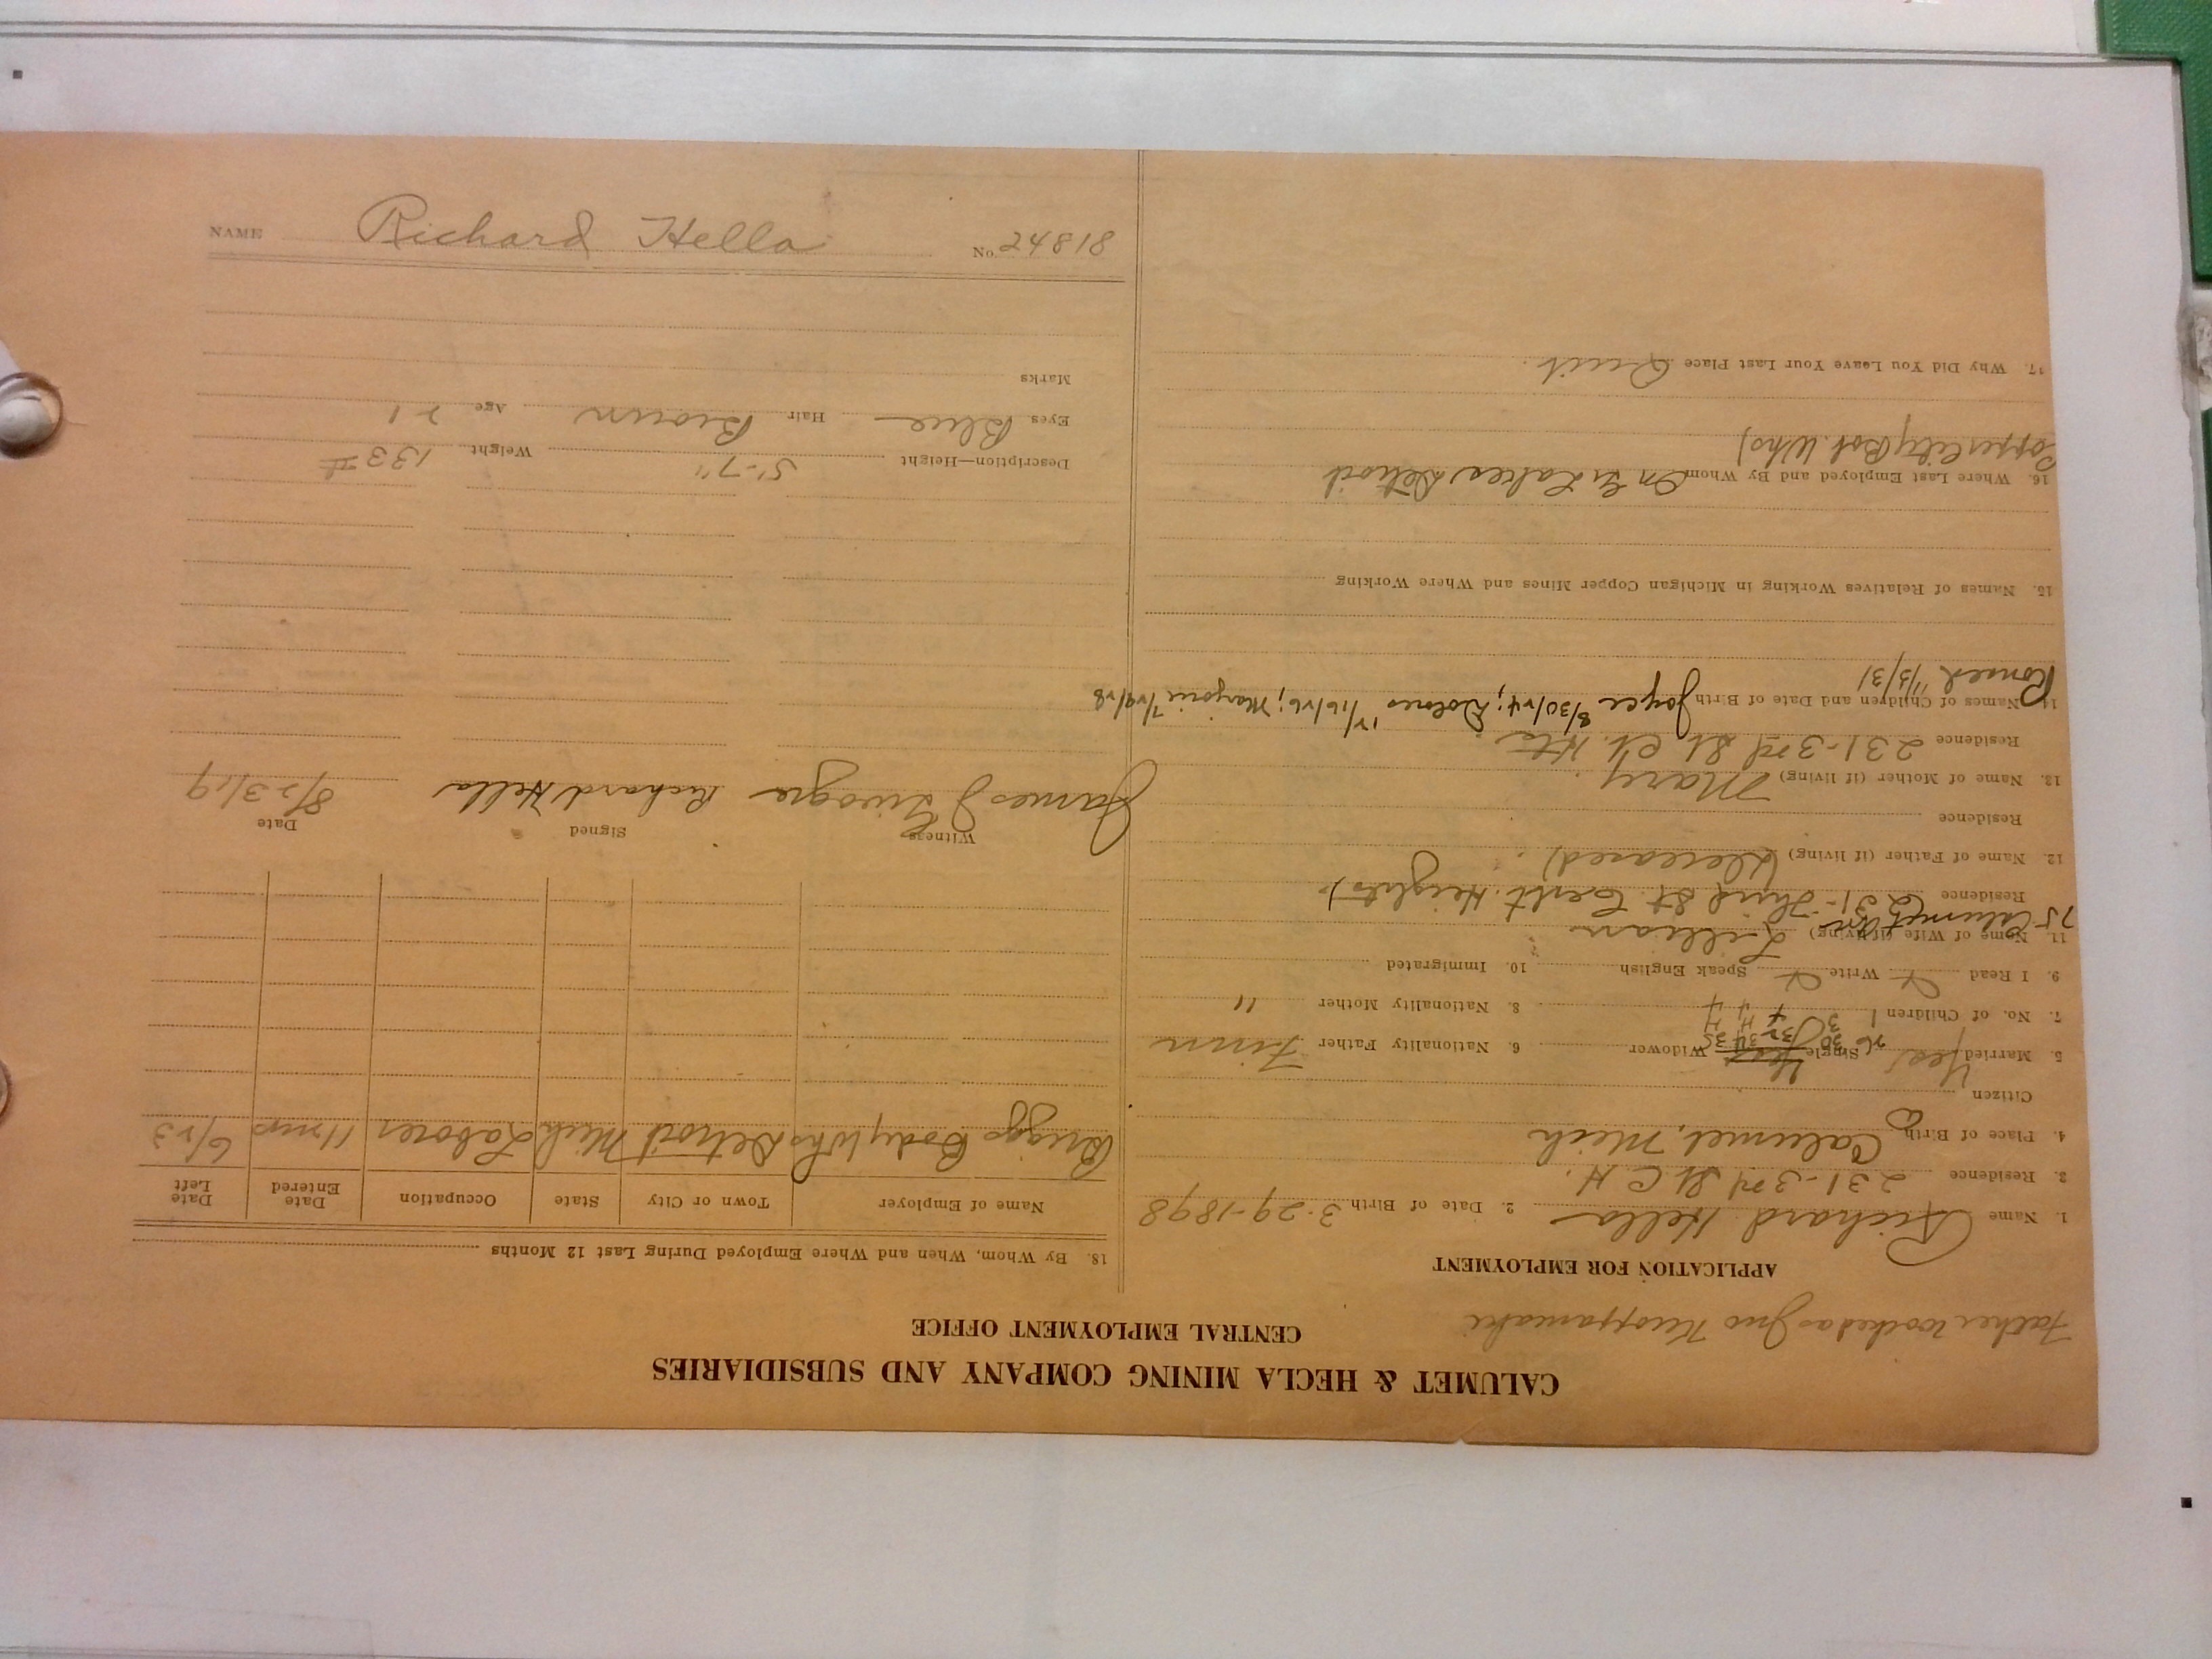 CALUMET & HECLA MINING COMPANY AND SUBSIDIARIES
CENTRAL EMPLOYMENT OFFICE
Father worked as Jno
APPLICATION FOR EMPLOYMENT
1. Name Richard Hella 2. Date of Birth 3-29-1898
3. Residence 231-3rd St C H.
4. Place of Birth Calumet, Mich
Citizen
5. Married Yes Single Yes Widower 6. Nationality Father Finn
26 30 32 34 35
7. No. of Children 1 3 4 4 4 8. Nationality Mother "
9. I Read Write Speak English 10. Immigrated
11. Name of Wife (if living) Lillian
75 Calumet Ave
Residence (231-Third St.
12. Name of Father (if living) (Deceased).
Residence
13. Name of Mother (if living) Mary.
Residence 231-3rd St
14. Names of Children and Date of Birth Joyce 8/30/24; Dolores 12/16/26; Marjorie 7/29/28
Ronald 11/3/31
15. Names of Relatives Working in Michigan Copper Mines and Where Working
16. Where Last Employed and By Whom On Gr Lakes Detroit
Copper City
17. Why Did You Leave Your Last Place Quit.
18. By Whom, When and Where Employed During Last 12 Months
Name of Employer Town or City State Occupation Date Entered Date Left
Briggs Body Wks Detroit Mich Laborer 6/23
Witness Signed Date
James J Richard Hella 8/23/19
Description—Height 5'-7" Weight 133#
Eyes Blue Hair Brown Age 21
Marks
NAME Richard Hella No. 24818